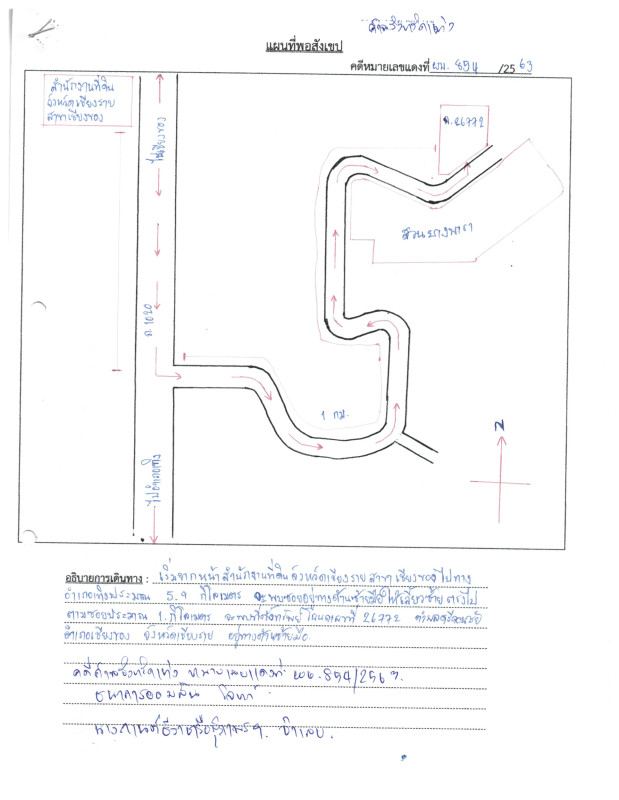 ศาลจังหวัดเทิง
แผนที่พอสังเขป
คดีหมายเลขแดงที่ ผบ. 854 /2563
สำนักงานที่ดิน
จังหวัดเชียงราย
สาขาเชียงของ
ไปเชียงของ
ฉ. 26772
สวนยางพารา
ถ. 1020
1 กม.
N
ไปอำเภอเทิง
อธิบายการเดินทาง : เริ่มจากหน้าสำนักงานที่ดินจังหวัดเชียงราย สาขาเชียงของ ไปทาง
อำเภอเทิงประมาณ 5.9 กิโลเมตร จะพบซอยอยู่ทางด้านซ้ายมือให้เลี้ยวซ้าย ตรงไป
ตามซอยประมาณ 1 กิโลเมตร จะพบที่ตั้งทรัพย์ โฉนดเลขที่ 26772 ตำบล
อำเภอเชียงของ จังหวัดเชียงราย อยู่ทางด้านซ้ายมือ
คดีศาลจังหวัดเทิง หมายเลขแดงที่ ผบ. 854/2563
ธนาคารออมสิน โจทก์
จำเลย